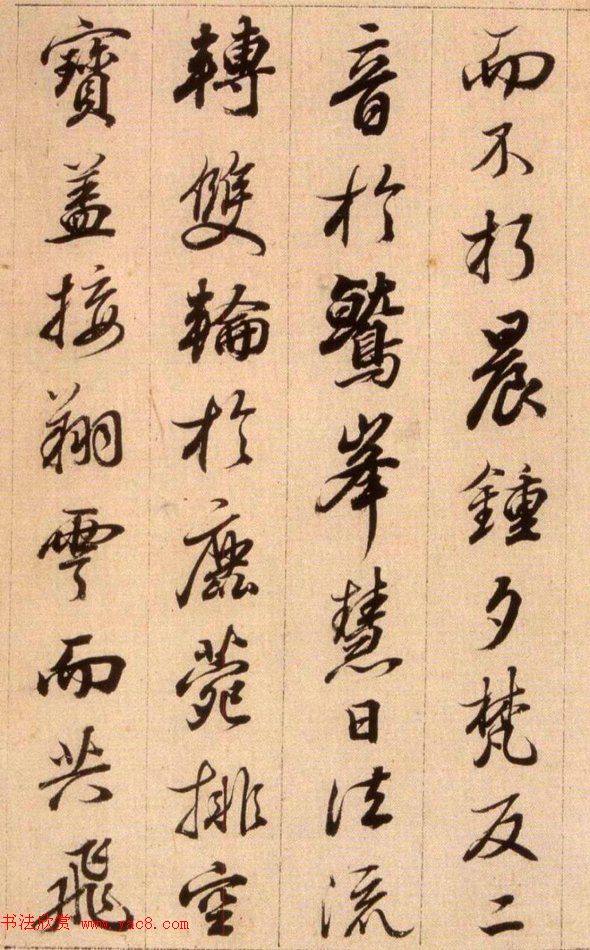 而不朽晨鍾夕梵交二
音於鷲峯慧日法流
轉雙輪於鹿苑排空
寶盖接翔雲而共飛
书法欣赏 www.yac8.com